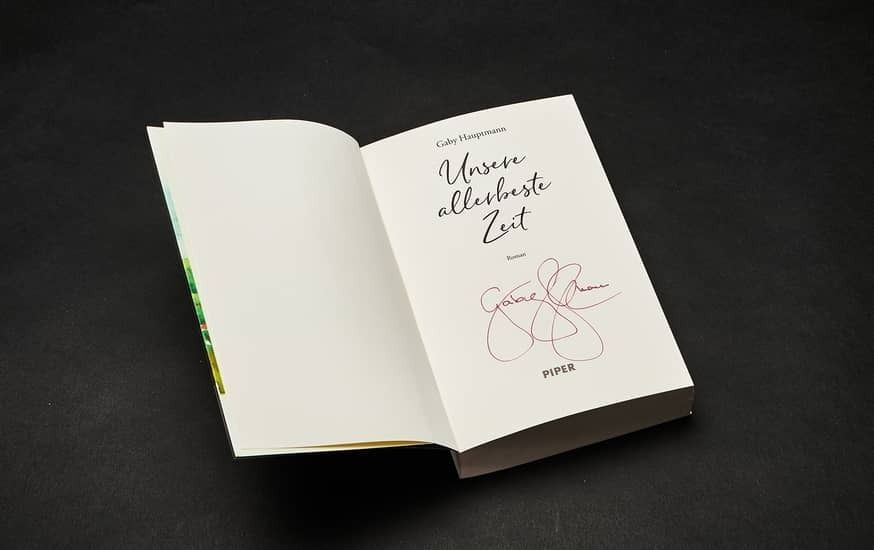 Gaby Hauptmann
Unsere
allerbeste
Zeit
Roman
PIPER